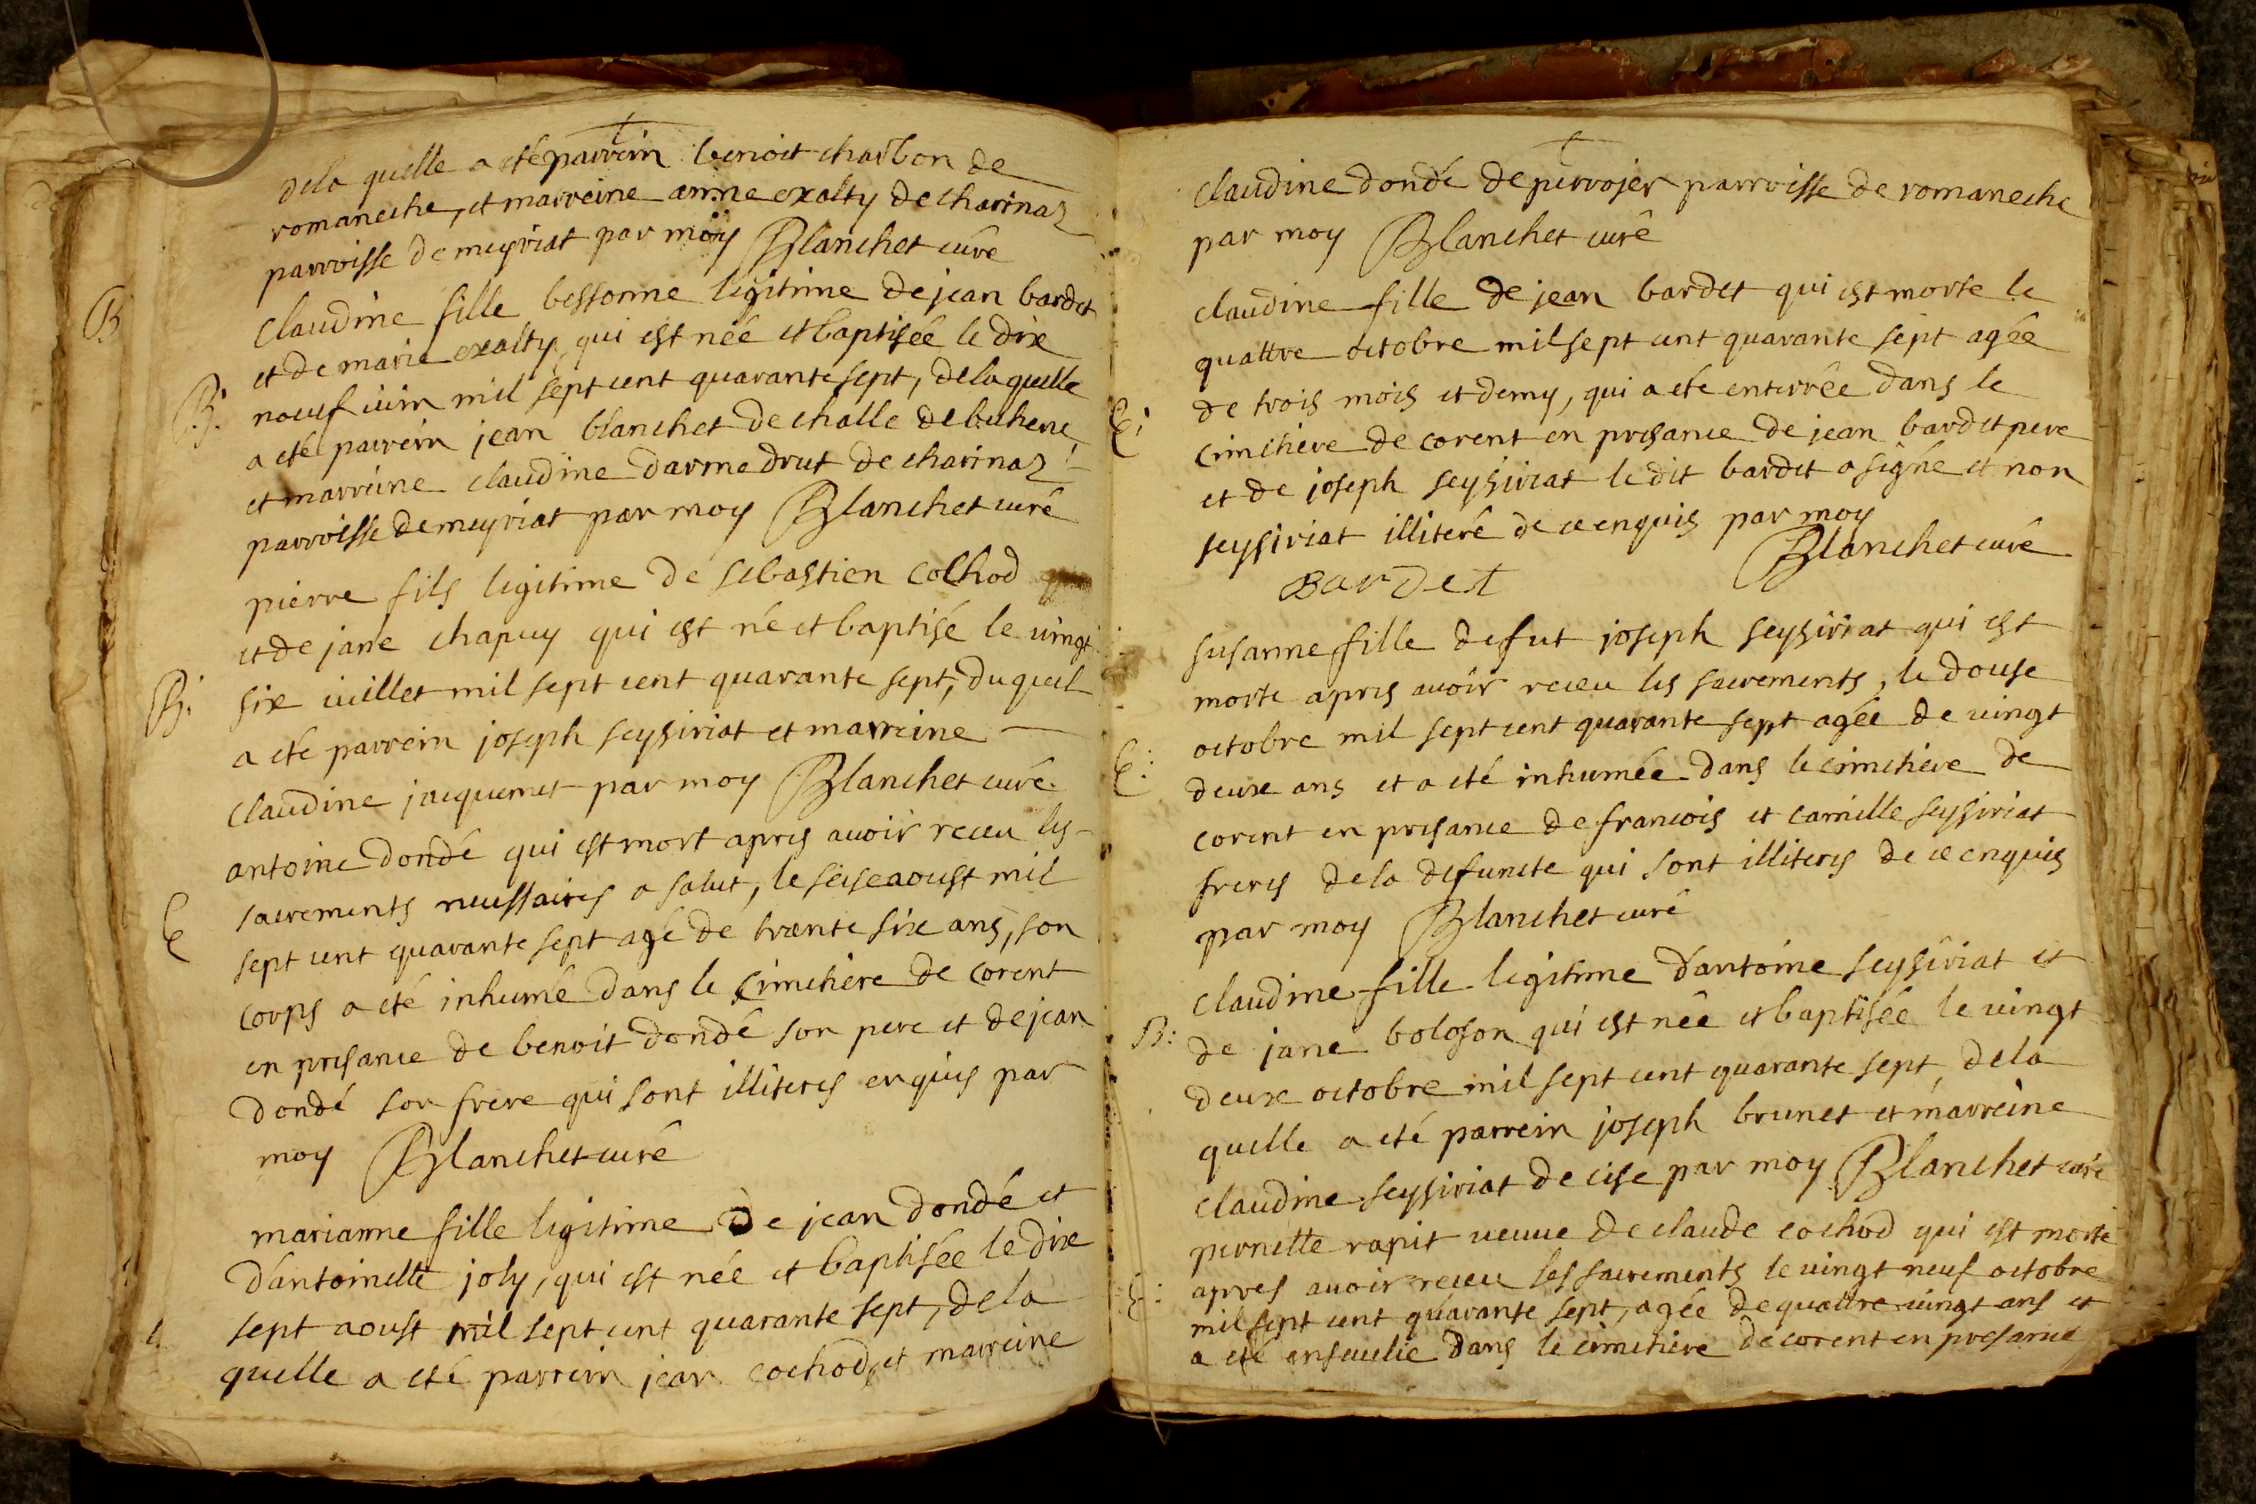 dela quelle a eté parrein benoit charbon de
romaneche, et marreine anne exalty de charinaz
parroisse de meyriat par moy Blanchet curé
B
claudine fille bessonne legitime de jean bardet
et de marie exalty qui est née et baptisée le dix
B:
neuf iuin mil sept cent quarante sept, dela quelle
a eté parrein jean blanchet de challe de buhene
et marreine claudine darmedrut de charinaz
parroisse de meyriat par moy Blanchet curé
pierre fils legitime de sebastien cochod
et de jane chapuy qui est né et baptisé le vingt
B:
six iuillet mil sept cent quarante sept, du quel
a eté parrein joseph seysiriat et marreine
claudine jacquemet par moy Blanchet curé
antoine dondé qui est mort apres auoir receu les
sacrements necessaires a salut, le seise aoust mil
E
sept cent quarante sept agé de trente six ans, son
corps a eté inhumé dans le cimetière de corent
en presance de benoit dondé son pere et de jean
dondé son frere qui sont illiteres enquis par
moy Blanchet curé
marianne fille legitime de jean dondé et
d'antoinette joly, qui est née et baptisée le dix
sept aoust mil sept cent quarante sept, de la
quelle a eté parrein jean cochod, et marreine
claudine dondé de perrojer parroisse de romaneche
par moy Blanchet curé
claudine fille de jean bardet qui est morte le
quattre octobre mil sept cent quarante sept agée
E:
de trois mois et demy, qui a eté enterrée dans le
cimetiere de corent en presance de jean bardet pere
et de joseph seysiriat le dit bardet a signé et non
seysiriat illiteré de ce enquis par moy
Blanchet curé
Bardet
susanne fille de fut joseph seysiriat qui est
morte apres auoir receu les sacrements, le douse
octobre mil sept cent quarante sept agée de vingt
E:
deux ans et a eté inhumée dans le cimetiere de
corent en presance de francois et camille seysiriat
freres de la defuncte qui sont illiteres de ce enquis
par moy Blanchet curé
claudine fille legitime d'antoine seysiriat et
B:
de jane boloson qui est née et baptisée le vingt
deux octobre mil sept cent quarante sept, de la
quelle a eté parrein joseph brunet et marreine
claudine seysiriat de cise par moy Blanchet curé
pernette rapit veuve de claude cochod qui est morte
E:
apres auoir receu les sacrements le vingt neuf octobre
mil sept cent quarante sept, agée de quattre vingt ans et
a eté enseuelie dans le cimetiere de corent en presance